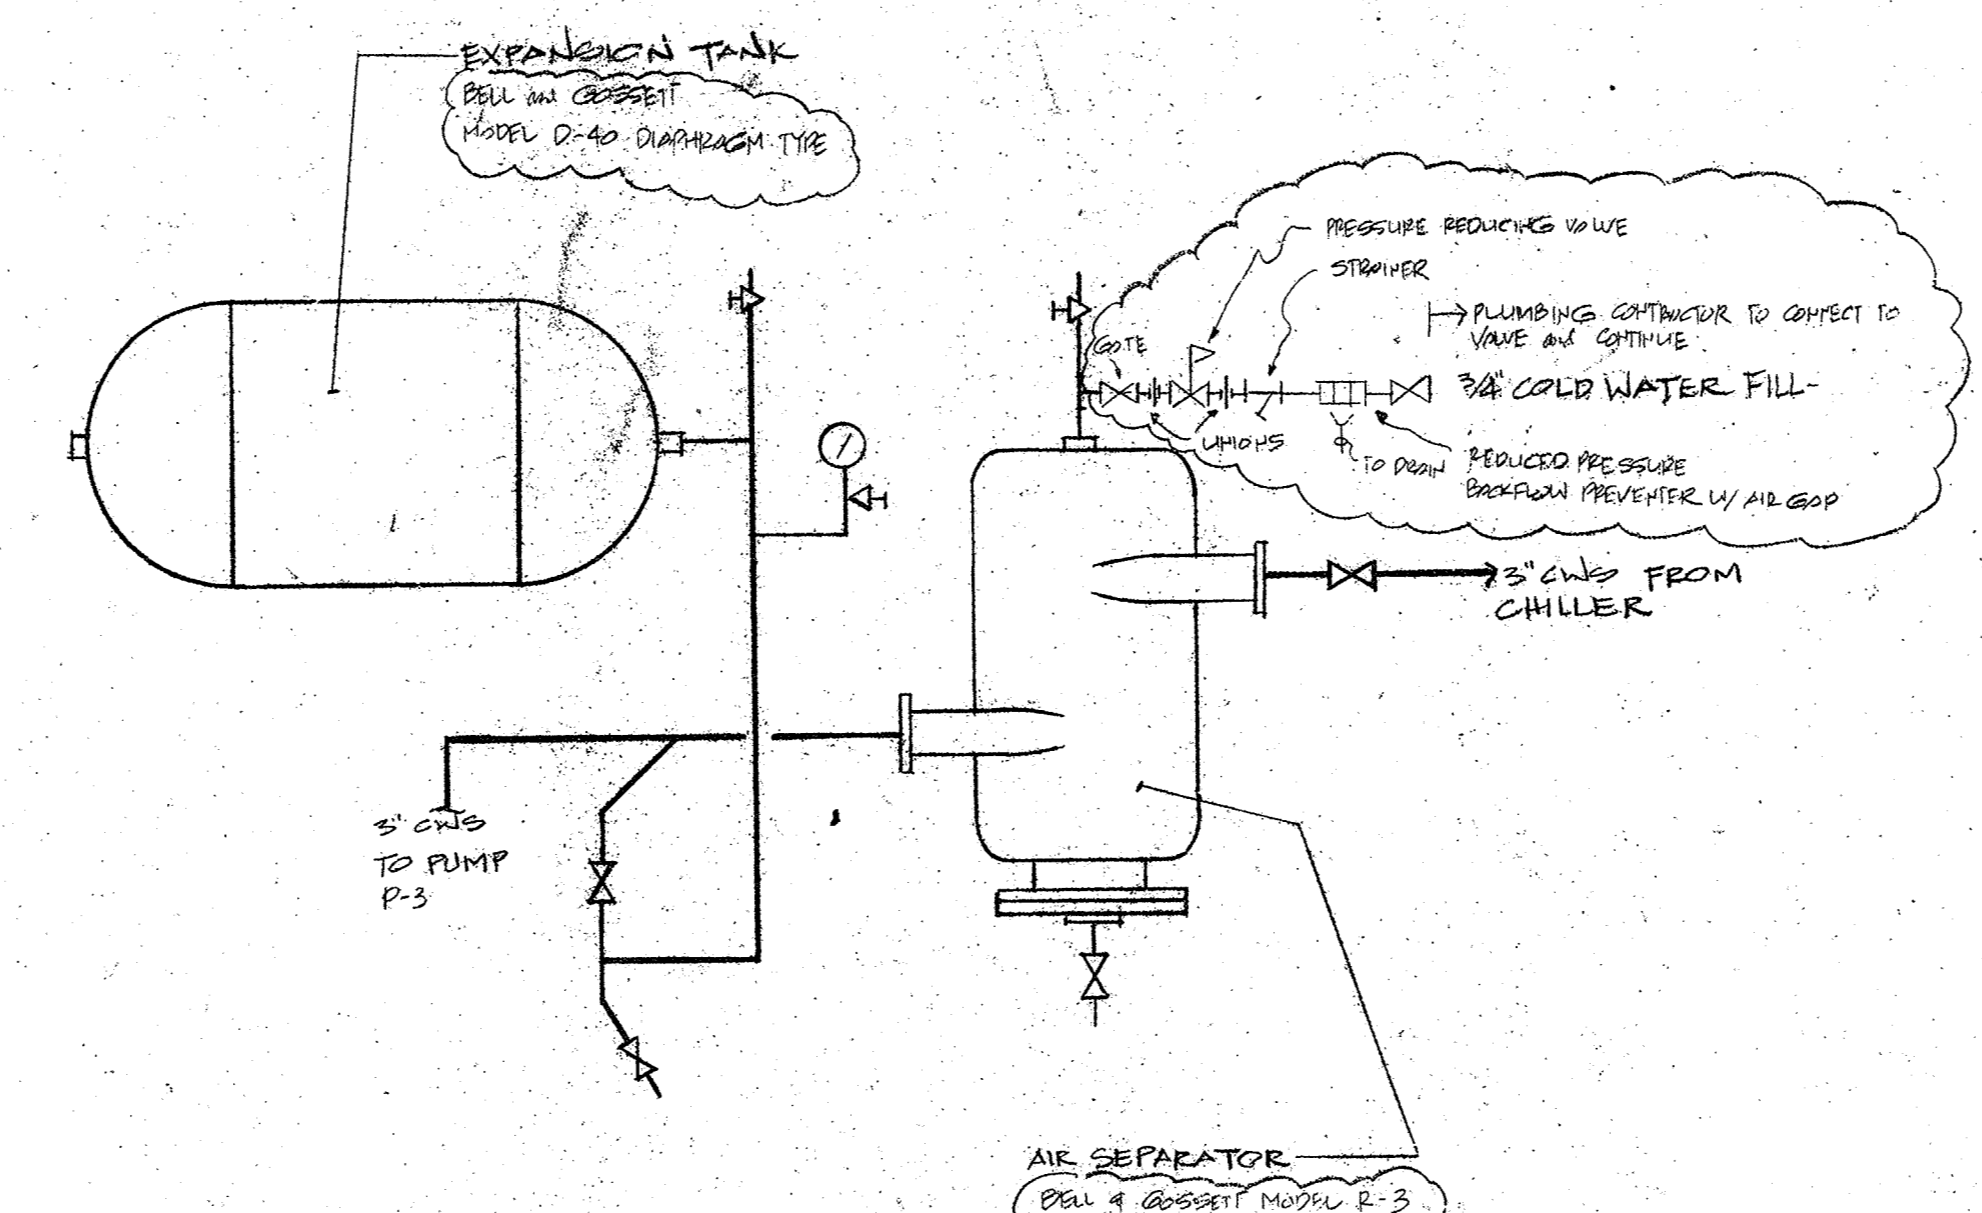 EXPANSION TANK
BELL and GOSSETT
MODEL D-40 DIAPHRAGM TYPE
PRESSURE REDUCING VALVE
STRAINER
PLUMBING CONTRACTOR TO CONNECT TO
VALVE and CONTINUE
GATE
3/4" COLD WATER FILL-
UNIONS
TO DRAIN
REDUCED PRESSURE
BACKFLOW PREVENTER W/ AIR GAP
3" CWS FROM
CHILLER
3" CWS
TO PUMP
P-3
AIR SEPARATOR
BELL & GOSSETT MODEL R-3